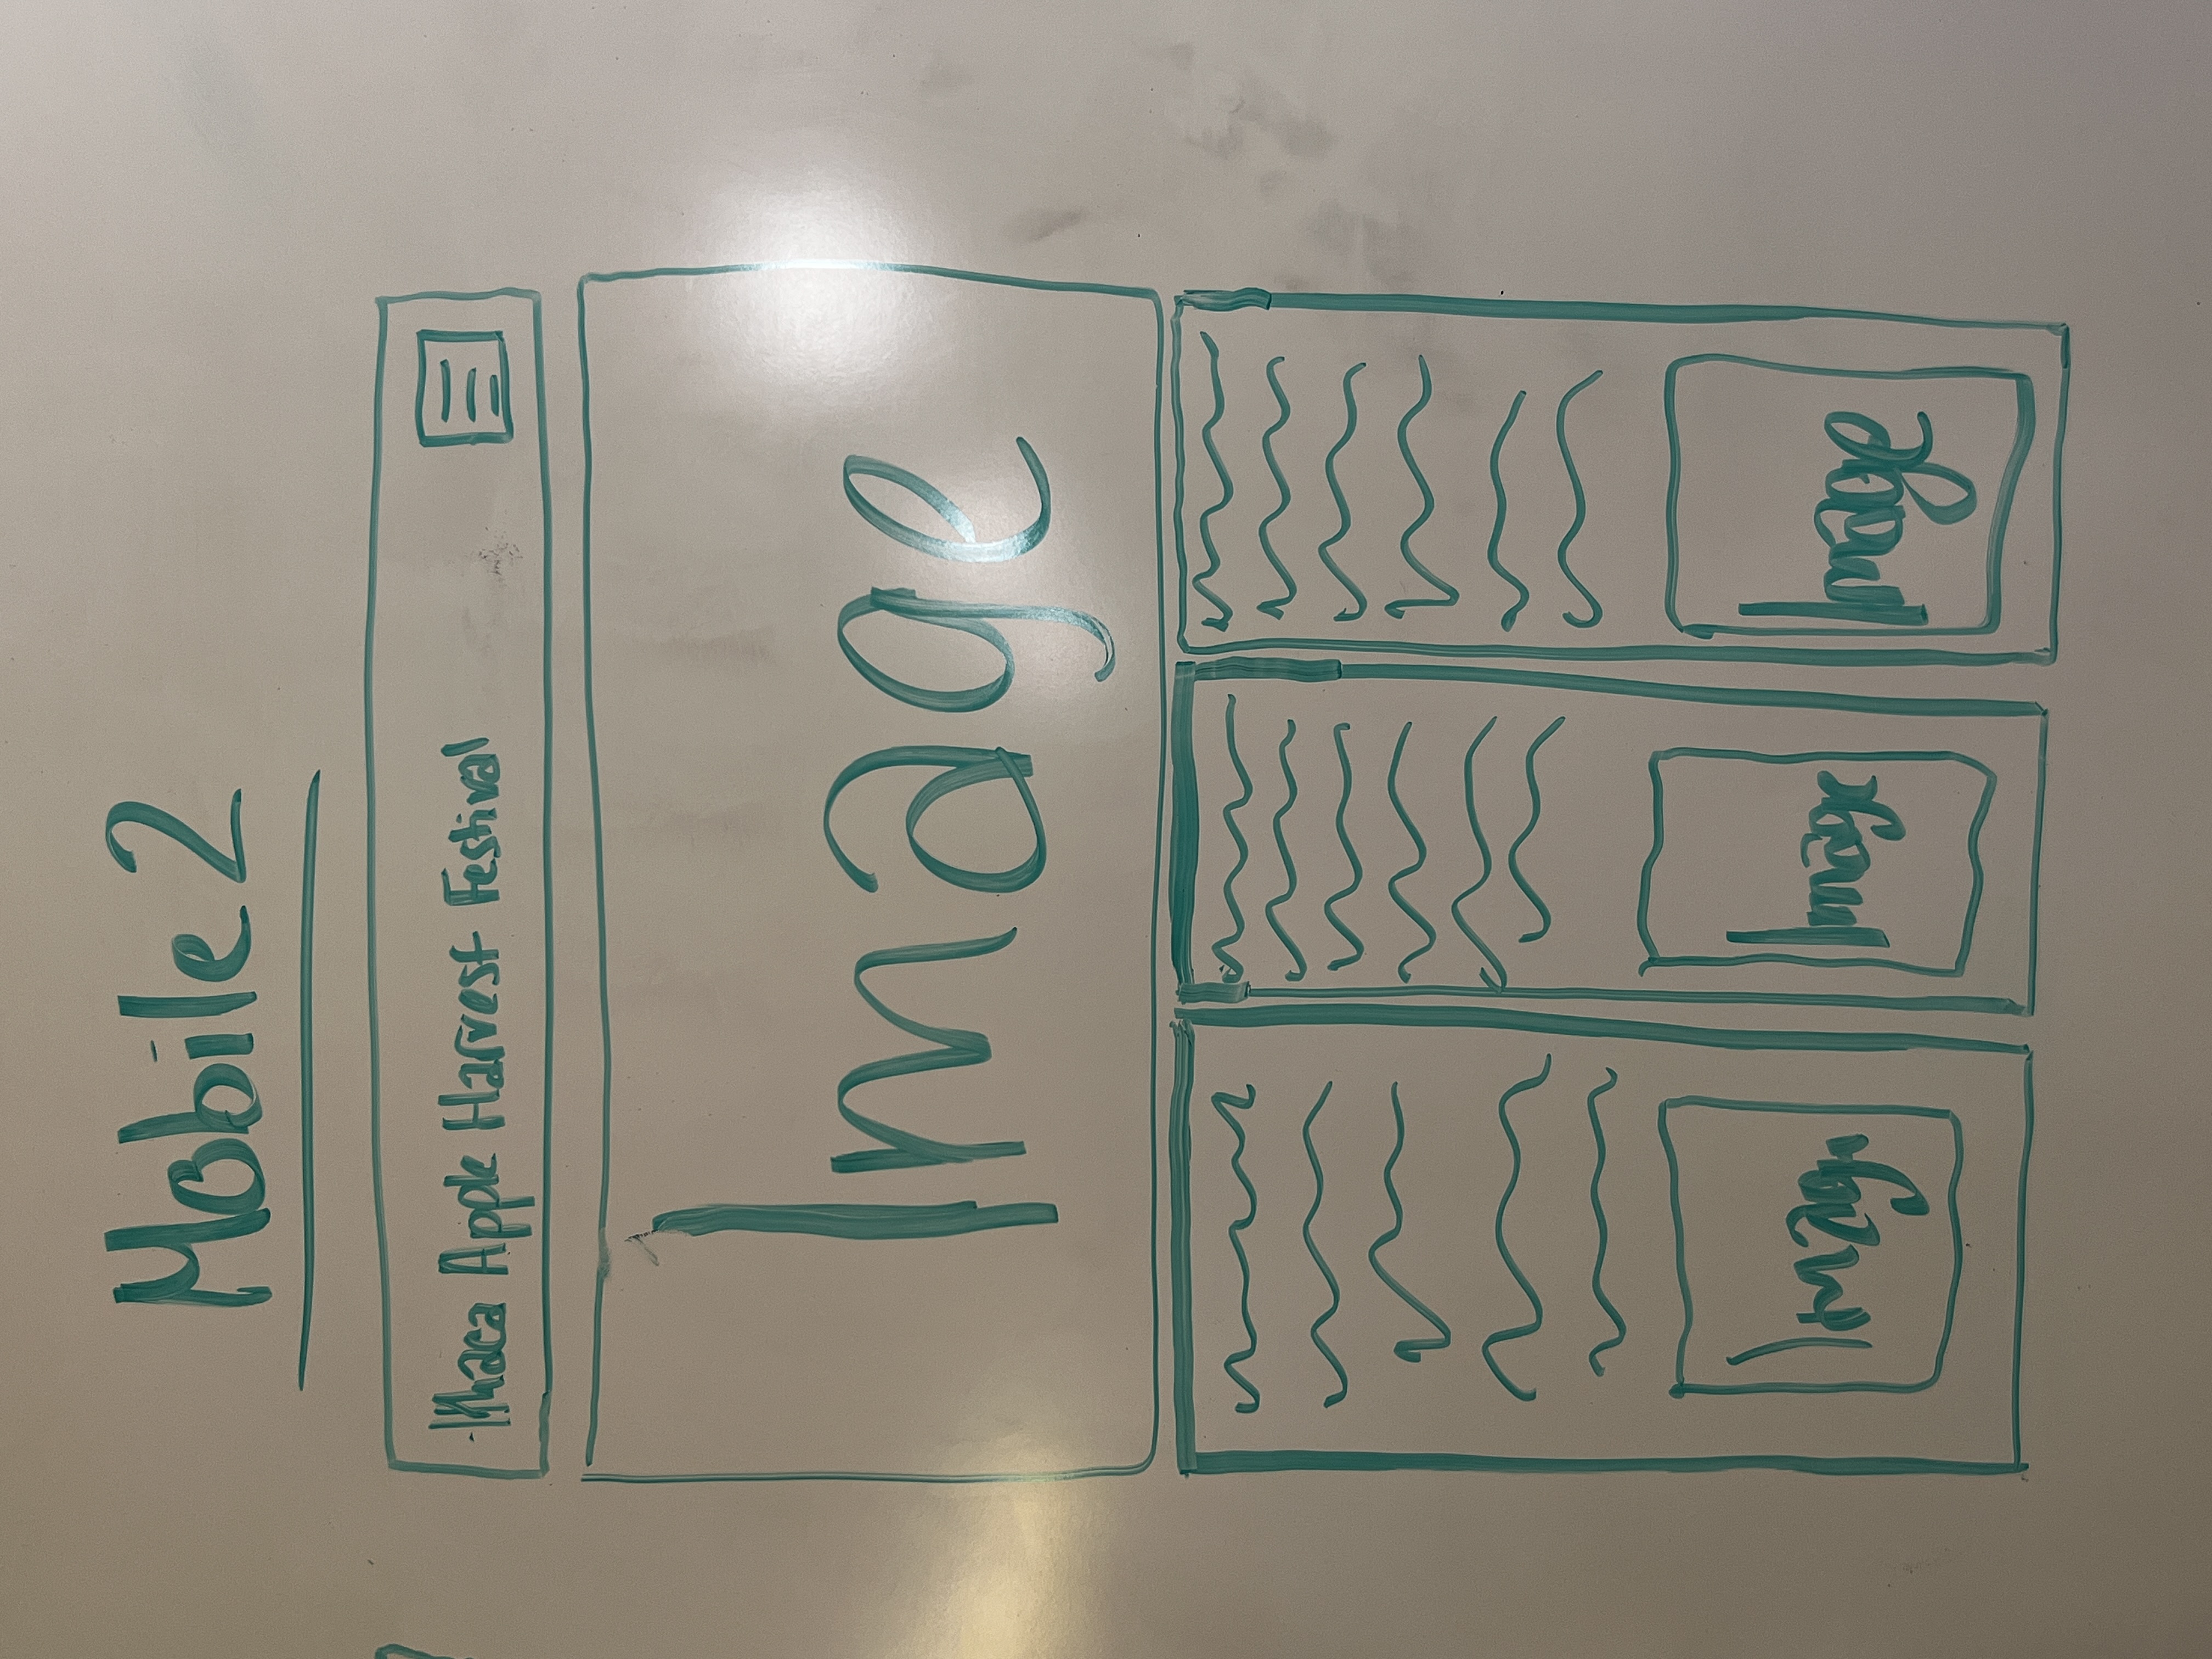 Mobile 2
Ithaca Apple Harvest Festival
Image
Image
Image
Image